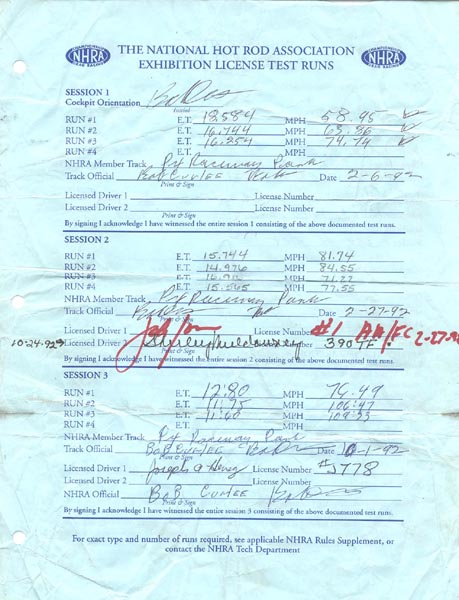 NHRA THE NATIONAL HOT ROD ASSOCIATION NHRA
EXHIBITION LICENSE TEST RUNS
SESSION 1
Cockpit Orientation
RUN #1 E.T. 18.584 MPH 58.95
RUN #2 E.T. 16.744 MPH 63.86
RUN #3 E.T. 16.254 MPH 74.74
RUN #4 E.T. MPH
NHRA Member Track Raceway Park
Track Official Bob Cumlee Date 2-6-92
Print & Sign
Licensed Driver 1 License Number
Licensed Driver 2 License Number
Print & Sign
By signing I acknowledge I have witnessed the entire session 1 consisting of the above documented test runs.
SESSION 2
RUN #1 E.T. 15.744 MPH 81.74
RUN #2 E.T. 14.976 MPH 84.55
RUN #3 E.T. MPH
RUN #4 E.T. 15.545 MPH 77.55
NHRA Member Track Raceway Park
Track Official Date 2-27-92
Print & Sign
Licensed Driver 1 License Number #1 AA/FC 2-27-92
10-24-92 Licensed Driver 2 Shirley Muldowney 390 TF
By signing I acknowledge I have witnessed the entire session 2 consisting of the above documented test runs.
SESSION 3
RUN #1 E.T. 12.80 MPH 76.49
RUN #2 E.T. 11.75 MPH 106.97
RUN #3 E.T. 11.60 MPH 109.33
RUN #4 E.T. MPH
NHRA Member Track Raceway Park
Track Official Bob Cumlee Date 10-1-92
Print & Sign
Licensed Driver 1 Joseph A License Number #5778
Licensed Driver 2 License Number
NHRA Official Bob Cumlee
Print & Sign
By signing I acknowledge I have witnessed the entire session 3 consisting of the above documented test runs.
For exact type and number of runs required, see applicable NHRA Rules Supplement, or
contact the NHRA Tech Department